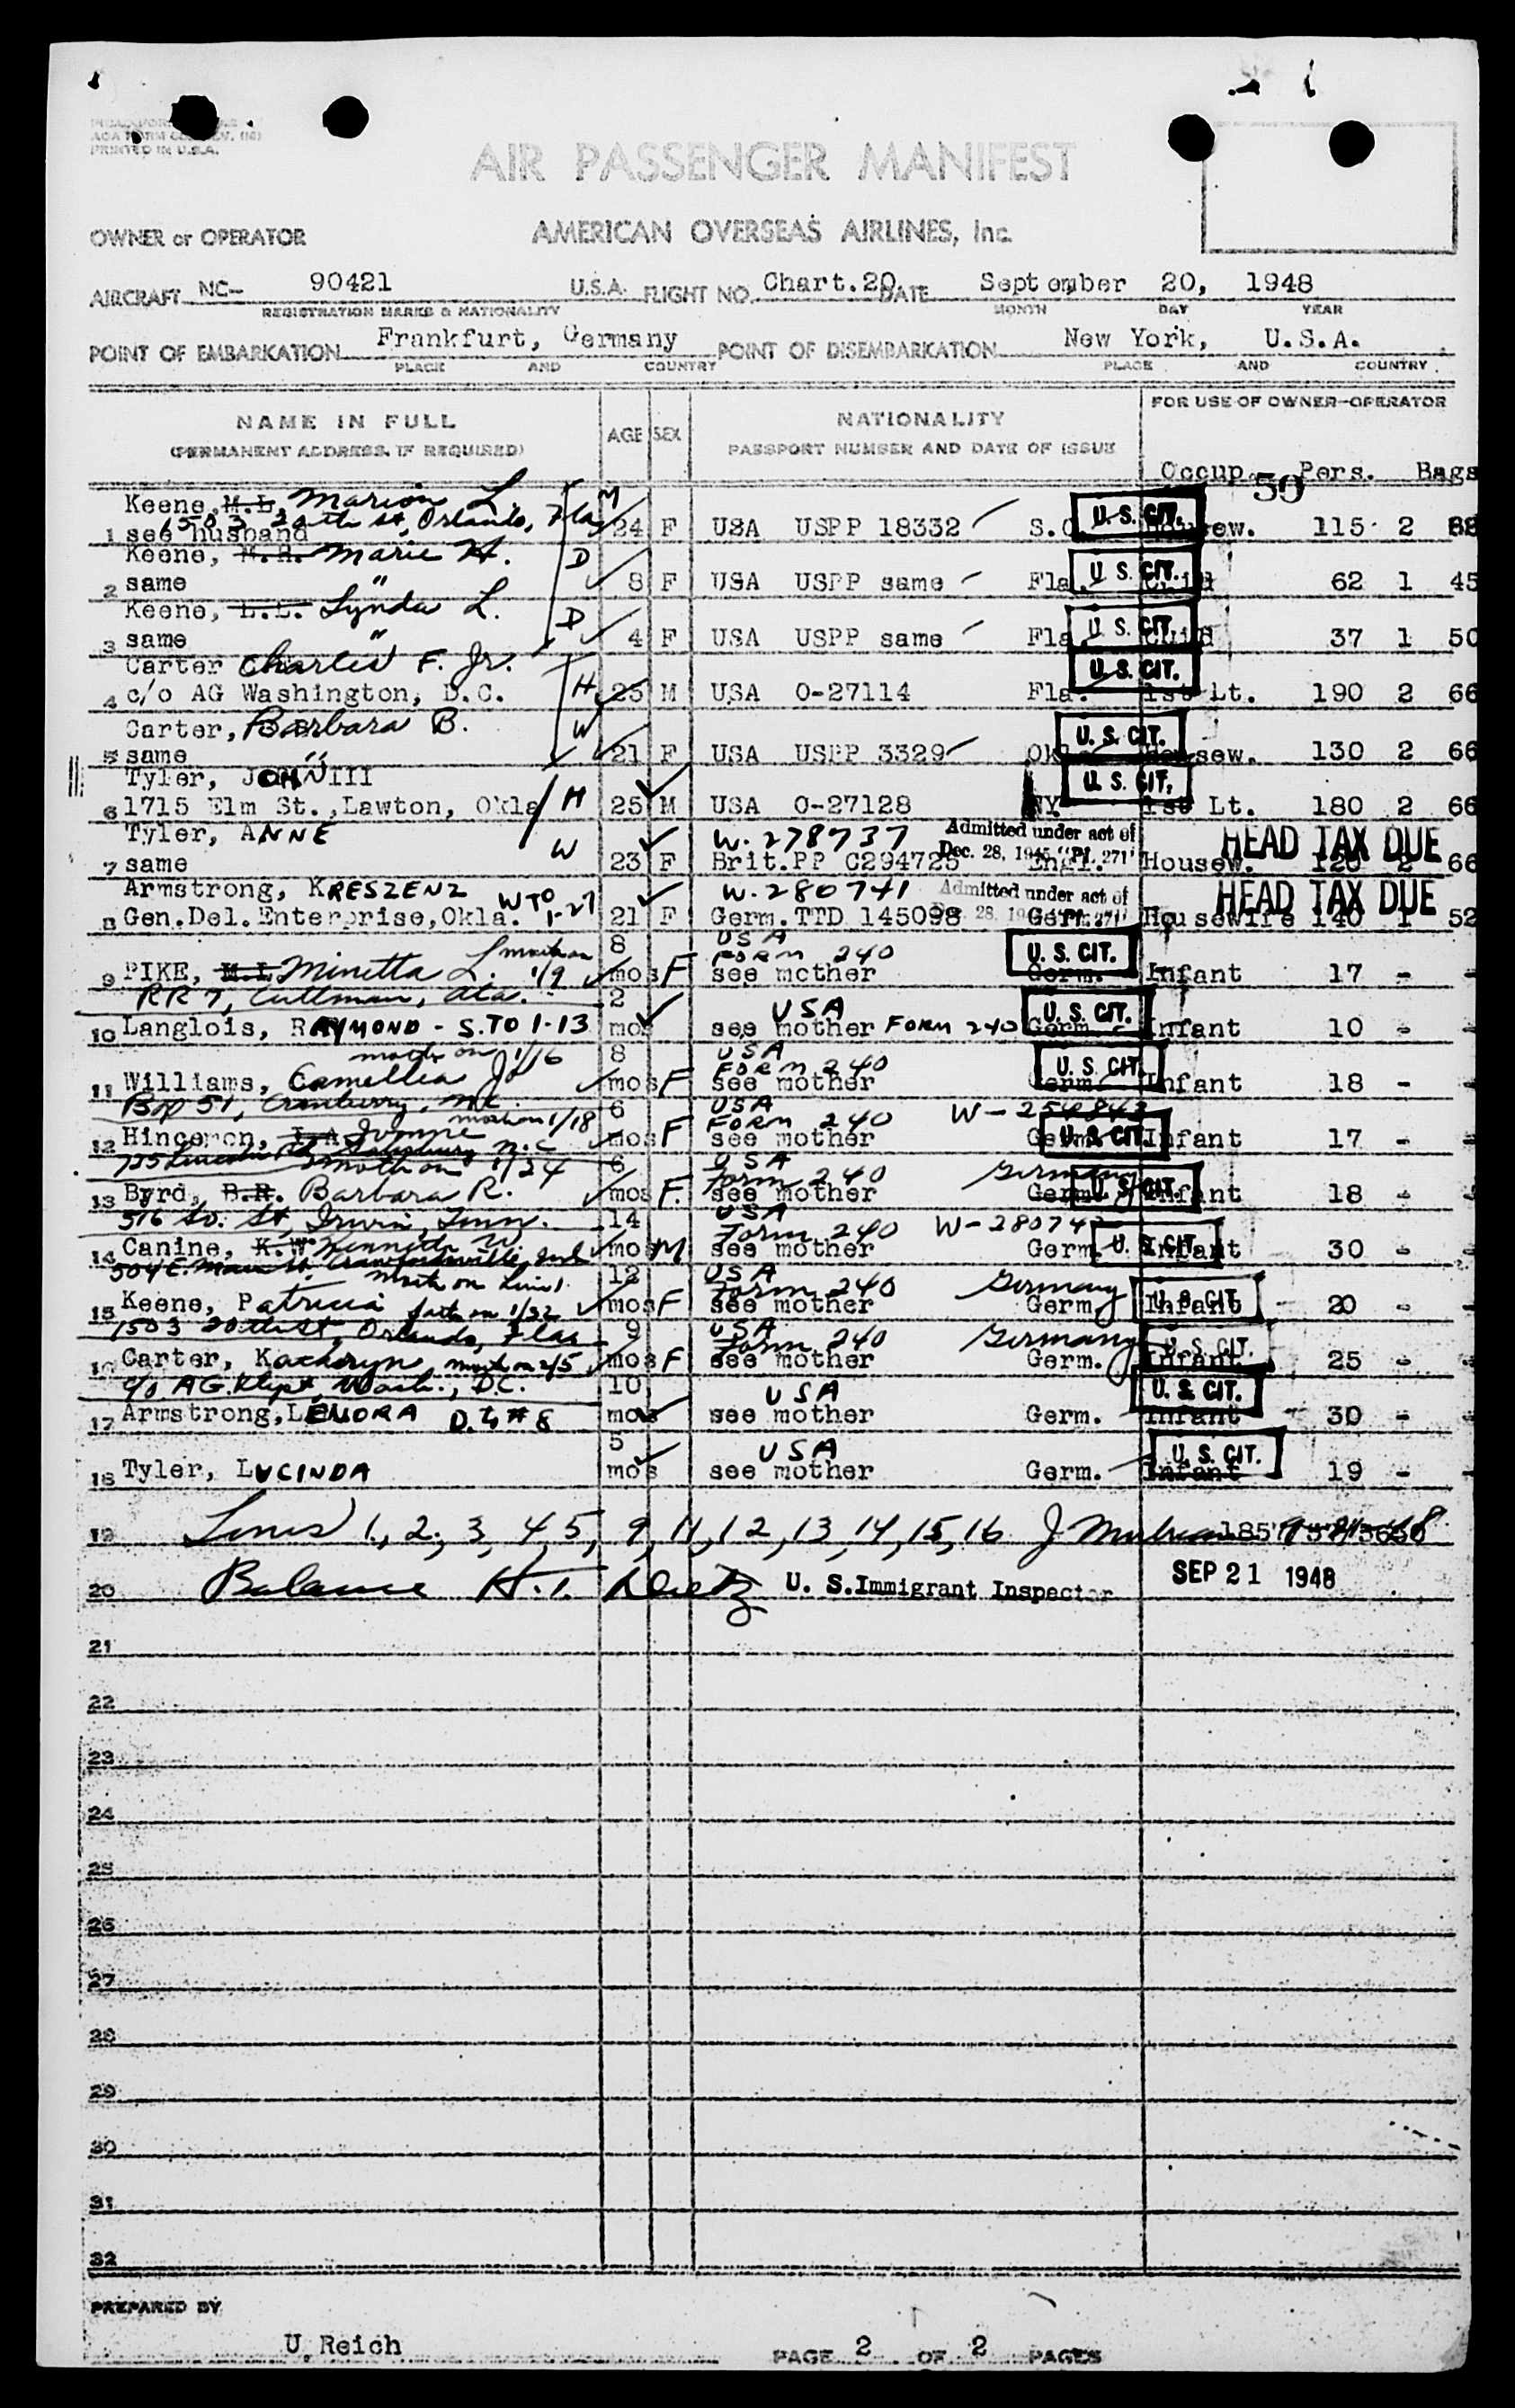 PRINTED IN U.S.A.
AIR PASSENGER MANIFEST
OWNER or OPERATOR AMERICAN OVERSEAS AIRLINES, Inc.
AIRCRAFT NC- 90421 U.S.A. FLIGHT NO. Chart.20 DATE September 20, 1948
REGISTRATION MARKS & NATIONALITY MONTH DAY YEAR
POINT OF EMBARKATION Frankfurt, Germany POINT OF DISEMBARKATION New York, U.S.A.
PLACE AND COUNTRY PLACE AND COUNTRY
NAME IN FULL AGE SEX NATIONALITY FOR USE OF OWNER-OPERATOR
(PERMANENT ADDRESS, IF REQUIRED) PASSPORT NUMBER AND DATE OF ISSUE
Occup. 50 Pers. Bags
Keene, M.L. Marion L M U.S. CIT.
1503 20th St, Orlando, Fla
1 see husband 24 F USA USPP 18332 S.C. 115 2 88
Keene, M.H. Marie H. D U.S. CIT.
2 same 8 F USA USPP same Fla. Child 62 1 45
Keene, L.L. Lynda L. D U.S. CIT.
3 same 4 F USA USPP same Fla. Child 37 1 50
Carter Charles F. Jr. U.S. CIT.
4 c/o AG Washington, D.C. H 25 M USA O-27114 Fla. 1st Lt. 190 2 66
Carter, Barbara B. W U.S. CIT.
5 same 21 F USA USPP 3329 Okla. Housew. 130 2 66
Tyler, JOHN III U.S. CIT.
6 1715 Elm St., Lawton, Okla H 25 M USA O-27128 NY. 1st Lt. 180 2 66
Tyler, ANNE W W.278737 Admitted under act of Dec. 28, 1945 "PL 271" HEAD TAX DUE
7 same 23 F Brit.PP C294725 Engl. Housew. 120 2 66
Armstrong, KRESZENZ W TO 1-27 W.280741 Admitted under act of Dec. 28, 1945 "PL 271" HEAD TAX DUE
8 Gen.Del.Enterprise,Okla. 21 F Germ.TTD 145098 Germ. Housewife 140 1 52
8 USA FORM 240 U.S. CIT.
9 PIKE, M.L. Minetta L. 1/9 mos F see mother Germ. Infant 17 - -
RR 7, Cullman, Ala. 2 USA U.S. CIT.
10 Langlois, RAYMOND - S.TO 1-13 mos see mother FORM 240 Germ. Infant 10 - -
moth on 1/16 8 USA FORM 240 U.S. CIT.
11 Williams, Camellia Jo mos F see mother Germ. Infant 18 -
Box 51, Cranberry, N.C. 6 USA FORM 240
moth on 1/18 U.S. CIT.
12 mos F see mother Infant 17 - -
725 Lincoln Rd Salisbury N.C 6 USA Form 240 Germany
moth on 1/24 U.S. CIT.
13 Byrd, B.R. Barbara R. mos F. see mother Germ. Infant 18 -
516 So. St, Irwin, Tenn. 14 USA Form 240 U.S. CIT.
14 Canine, K.W Kenneth W mos M see mother Germ. Infant 30 -
504 E. Main St. Crawfordsville, Ind 12 USA Form 240 Germany
moth on Line 1. U.S. CIT.
15 Keene, Patricia fath on 1/32 mos F see mother Germ. Infant 20 -
1503 20th St, Orlando, Fla 9 USA Form 240 Germany U.S. CIT.
16 Carter, Kathryn, moth on 2/5 mos F see mother Germ. Infant 25 -
c/o AG Dept, Wash., D.C. 10 USA U.S. CIT.
17 Armstrong, LENORA D. of #8 mos see mother Germ. Infant 30 - -
5 USA U.S. CIT.
18 Tyler, LUCINDA mos see mother Germ. Infant 19 - -
19 Lines 1, 2, 3, 4, 5, 9, 11, 12, 13, 14, 15, 16
20 Balance H.T. Dietz U. S.Immigrant Inspector SEP 21 1948
21
22
23
24
25
26
27
28
29
30
31
32
PREPARED BY
U. Reich PAGE 2 OF 2 PAGES